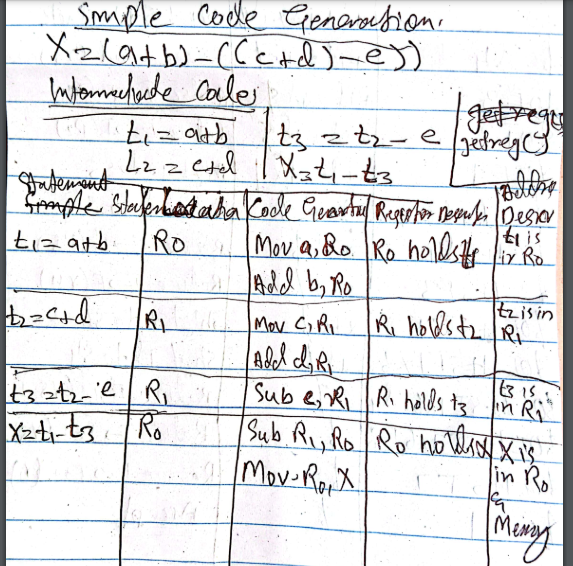 Simple Code Generation.
X=(a+b)-((c+d)-e))
Intermediate Codes
t1=a+b
t2=c+d
t3=t2-e
X=t1-t3
getreg()
Statement Location Code Generation Register Descriptor Address Descr
t1=a+b R0 Mov a, R0 R0 holds t1 t1 is in R0
Add b, R0
t2=c+d R1 Mov c, R1 R1 holds t2 t2 is in R1
Add d, R1
t3=t2-e R1 Sub e, R1 R1 holds t3 t3 is in R1
X=t1-t3 R0 Sub R1, R0 R0 holds X X is in R0
Mov R0, X & Memory